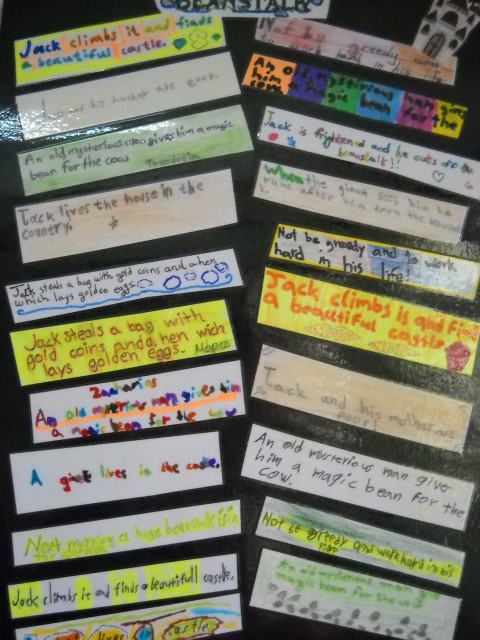 BEANSTALK
Jack climbs it and finds
a beautiful castle.
Jack and his mother are poor.
An old mysterious man gives him a magic
bean for the cow Theodosia
Jack lives the house in the
country.
Jack steals a bag with gold coins and a hen
which lays golden eggs
Jack steals a bag with
gold coins and a hen wich
lays golden eggs. Marios
Zacharias
An old man gives him
a magic bean for the
A giant lives in the castle.
Next morning a huge beanstalk is in
Jack climbs it and finds a beautifull castle.
lives in castle
Not be greedy and
work hard in his life
An o mysterious man gives
him magic bean for the
Jack is frightened and he cuts
beanstalk!!
When the giant sees him he
runs after him down the
Not be greedy and to work
hard in his life!
Jack climbs is and find
a beautiful castle
Jack and his mother are
poor!
An old mysterious man give
him a magic bean for the
cow.
Not be greedy and work hard in his
life
An old mysterious man give
magic beam for the cow